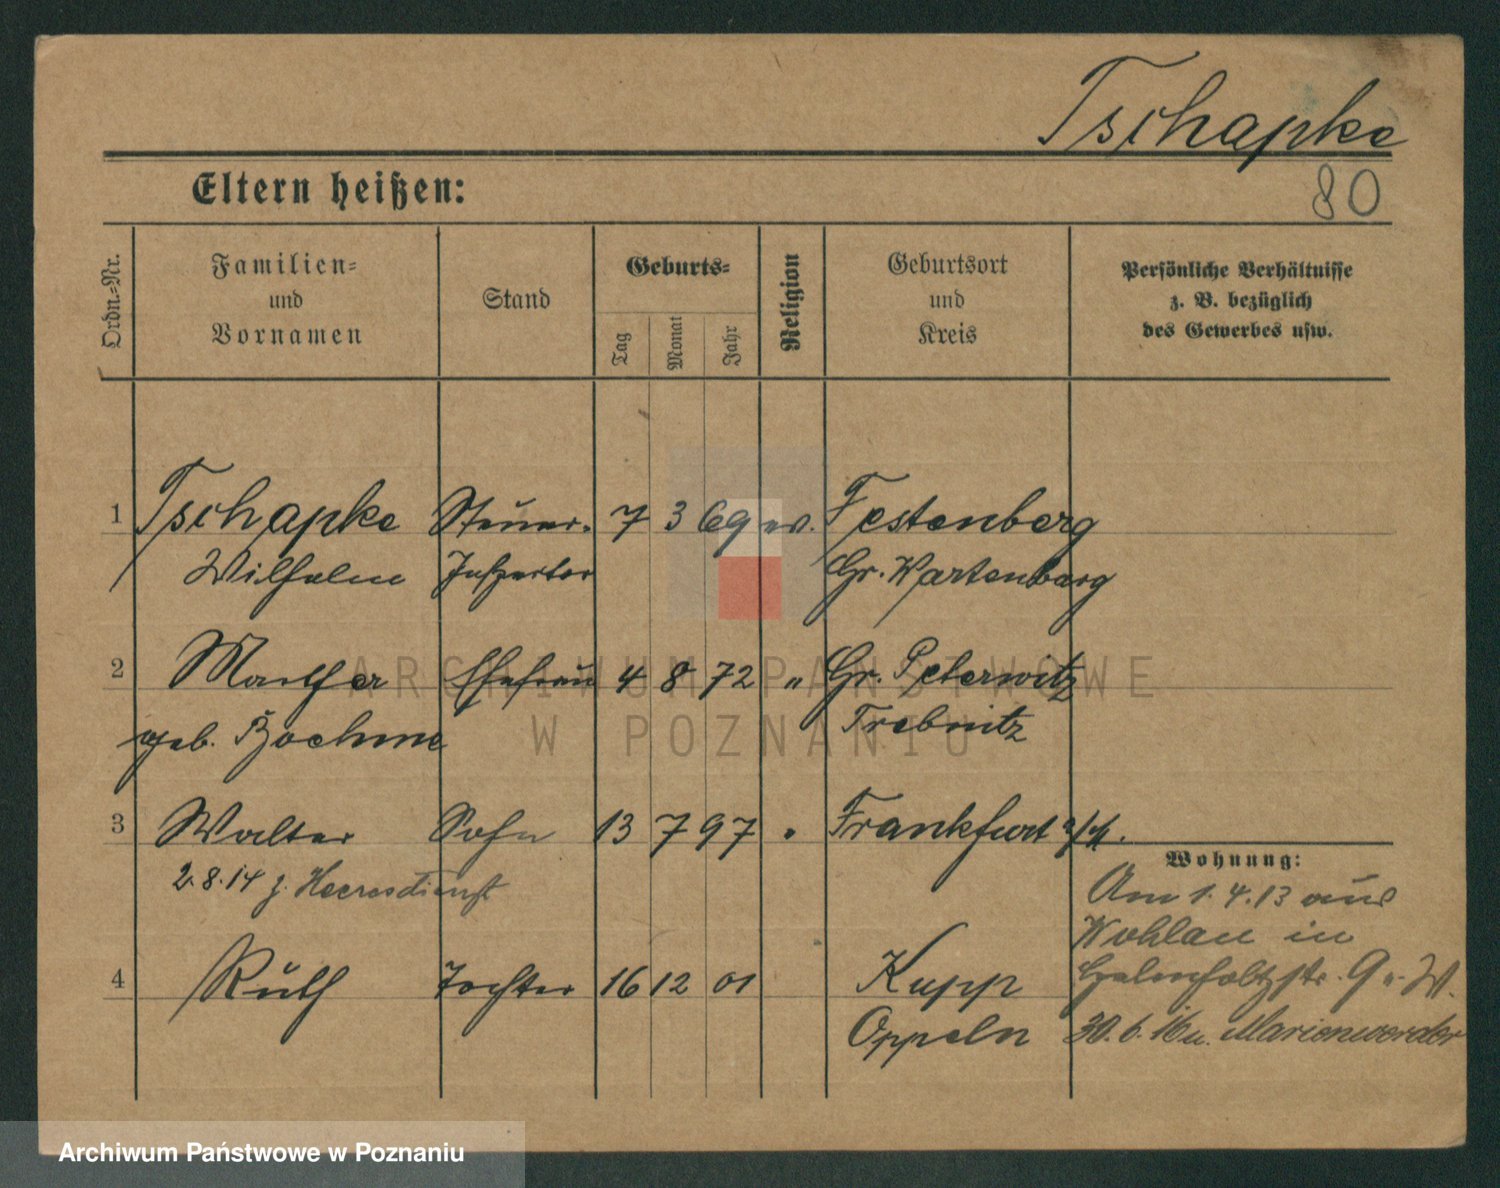 Tschapke
Eltern heißen:
80
Ordn.-Nr.
Familien-
und
Vornamen
Stand
Geburts-
Tag
Monat
Jahr
Religion
Geburtsort
und
Kreis
Persönliche Verhältnisse
z. B. bezüglich
des Gewerbes usw.
1 Tschapke Steuer- 7 3 69 ev. Festenberg
Wilhelm Inspektor Gr. Wartenberg
2 Marthea Ehefrau 4 8 72 " Gr. Peterwitz
geb. Boehme Trebnitz
3 Walter Sohn 13 7 97 " Frankfurt a/M.
2.8.14 z. Heeresdienst
Wohnung:
Am 1.4.13 aus
Wohlau in
4 Ruth Tochter 16 12 01 Kupp
Helmholtzstr. 9 v. W.
Oppeln
30.6.16 n. Marienwerder
ARCHIWUM PAŃSTWOWE
W POZNANIU
Archiwum Państwowe w Poznaniu